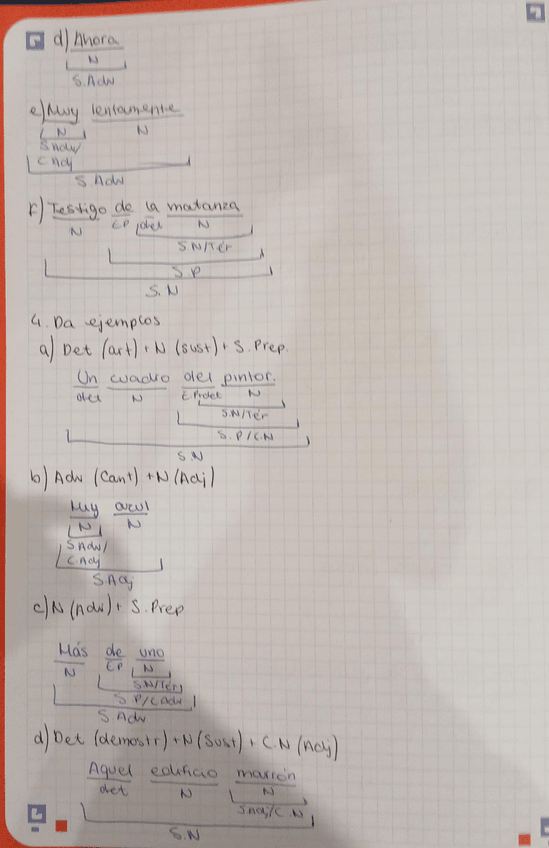 d) Ahora
N
S.Adv
e) Muy lentamente
N N
S Adv/
C Adj
S Adv
F) Testigo de la matanza
N EP det N
S N/Tér
S.P
S.N
4. Da ejemplos
a) Det (art) + N (sust) + S.Prep.
Un cuadro del pintor.
det N EP+det N
S.N/Tér
S.P/C.N
S N
b) Adv (Cant) + N (Adj)
Muy azul
N N
S Adv/
C.Adj
S.Adj
c) N (Adv) + S.Prep
Más de uno
N EP N
S N/Tér
S P/C Adv
S Adv
d) Det (demostr) + N (Sust) + C.N (Adj)
Aquel edificio marrón
det N N
S.Adj/C.N
S.N